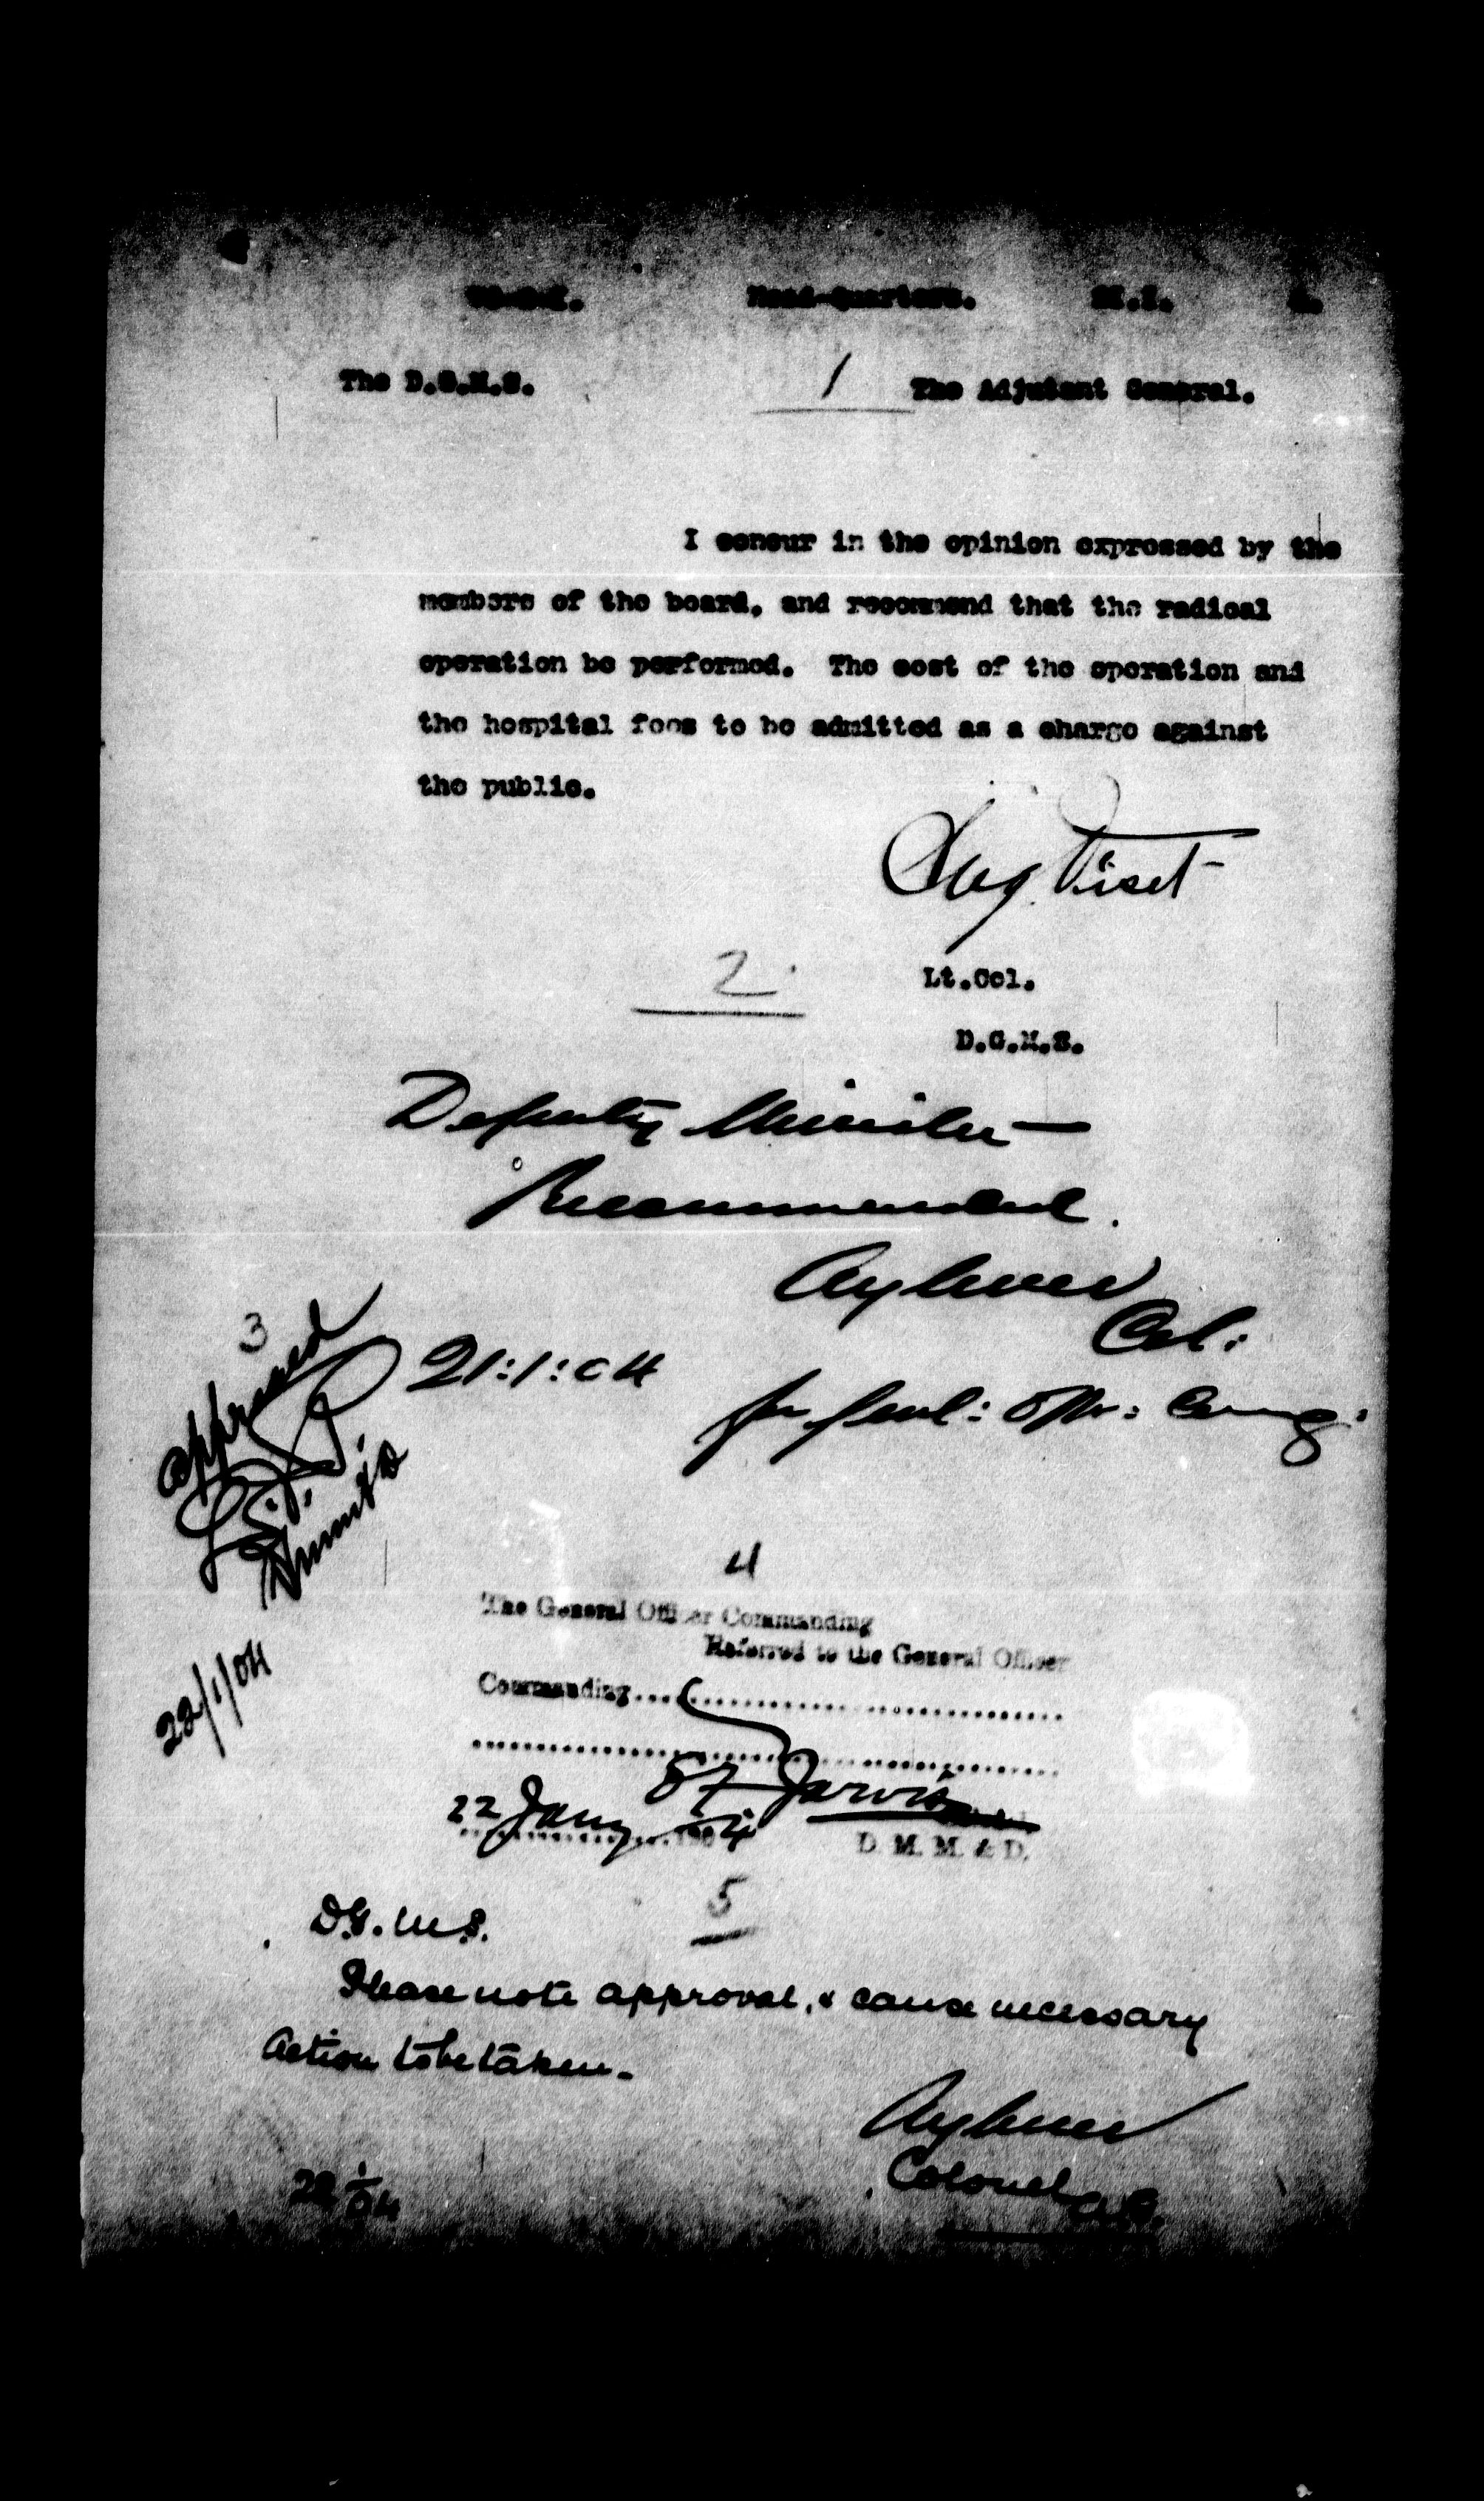 Head-Quarters.
The D.G.M.S.
1
The Adjutant General.
I concur in the opinion expressed by the
members of the board, and recommend that the radical
operation be performed. The cost of the operation and
the hospital fees to be admitted as a charge against
the public.
Eug. Fiset
2
Lt.Col.
D.G.M.S.
Deputy Minister
Recommended.
Aylmer
Col:
21:1:04
for Genl: Offr: Comg:
3
approved
22/1/04
4
The General Officer Commanding
Referred to the General Officer
Commanding
Jarvis
22 Jany 1904
D. M. M. & D.
5
D.G.M.S.
Please note approval, & cause necessary
action to be taken.
Aylmer
Colonel
22/1/04